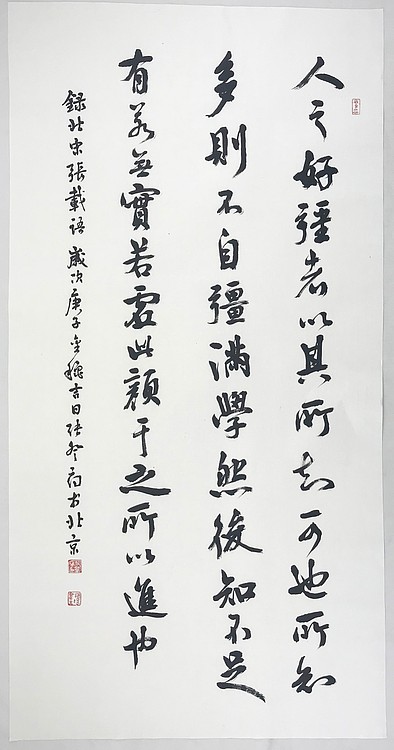 人之好彊者以其所知少也所知
多則不自彊滿學然後知不足
有若無實若虛此顏子之所以進也
録北宋張載語 歲次庚子金穐吉日張北京